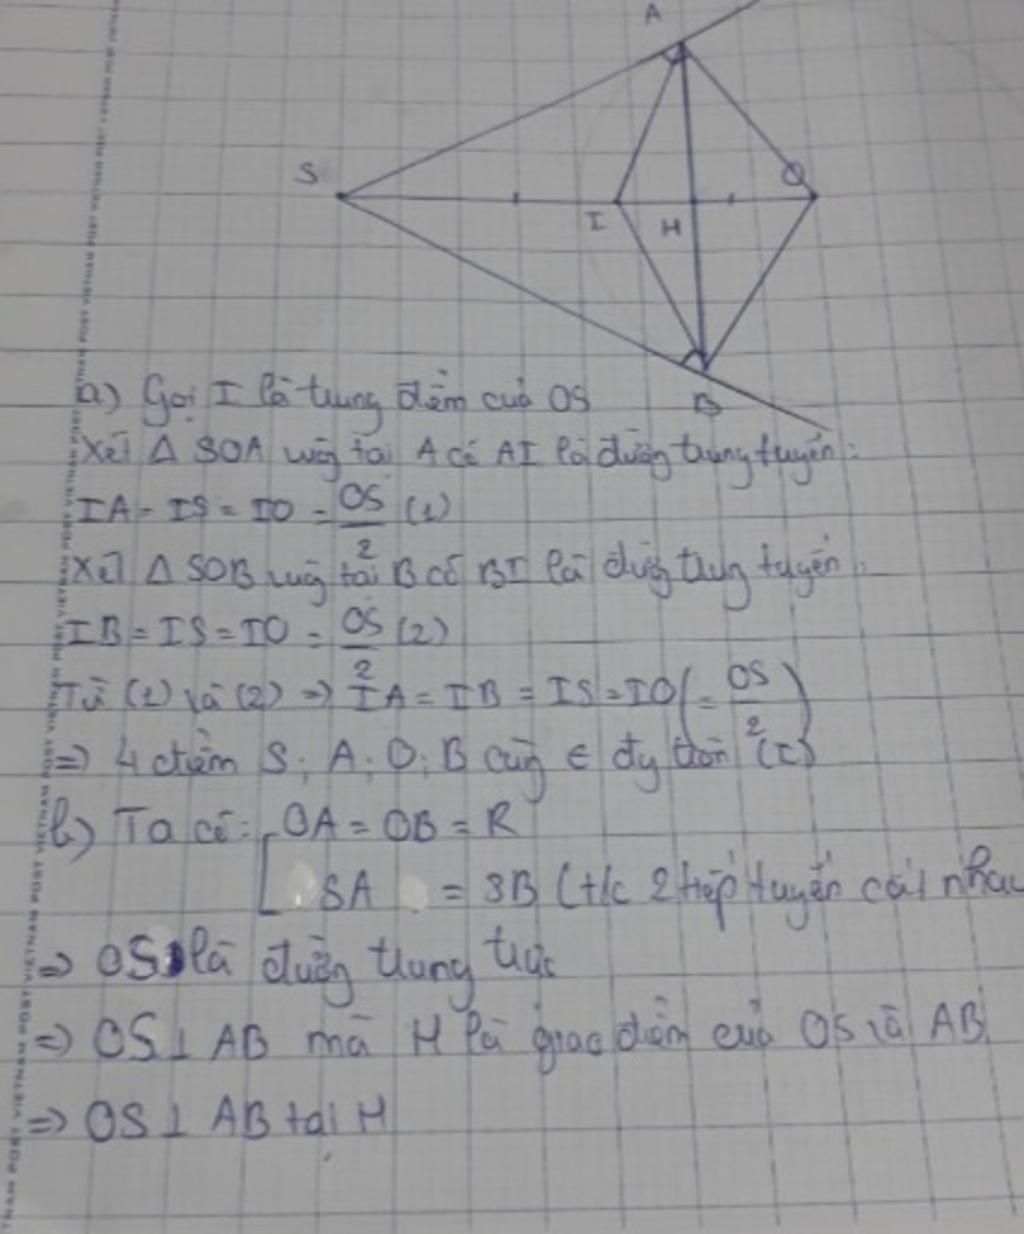 A
S
O
I
H
B
a) Gọi I là trung điểm của OS
Xét Δ SOA vuông tại A có AI là đường trung tuyến:
IA = IS = IO = OS/2 (1)
Xét Δ SOB vuông tại B có BI là đường trung tuyến:
IB = IS = IO = OS/2 (2)
Từ (1) và (2) => IA = IB = IS = IO (= OS/2)
=> 4 điểm S; A; O; B cùng ∈ đg tròn (I)
b) Ta có: [OA = OB = R
SA = SB (t/c 2 tiếp tuyến cắt nhau
=> OS là đường trung trực
=> OS ⊥ AB mà H là giao điểm của OS và AB
=> OS ⊥ AB tại H
VIETNAM POST